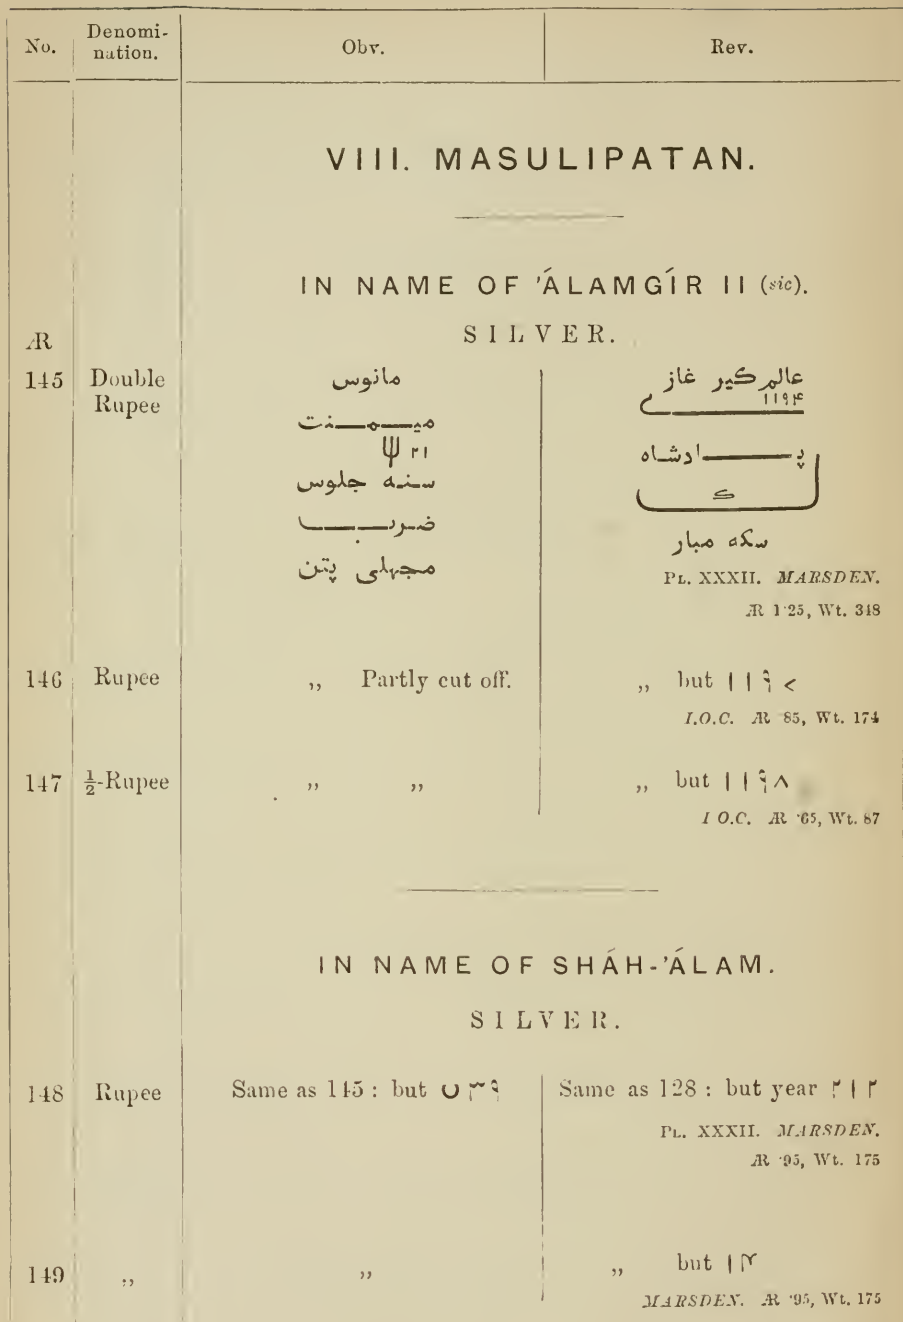 No. Denomi- Obv. Rev.
nation.
VIII. MASULIPATAN.
IN NAME OF 'ÁLAMGÍR II (sic).
SILVER.
Æ
145 Double
Rupee
مانوس
ميمنت
۲۱
سنه جلوس
ضرب
مجهلی پتن
عالمكير غاز
۱۱۹۴
ے
پادشاه
ك
سكه مبار
PL. XXXII. MARSDEN.
Æ 1·25, Wt. 348
146 Rupee ,, Partly cut off. ,, but ۱۱۹
I.O.C. Æ ·85, Wt. 174
147 ½-Rupee ,, ,, ,, but ۱۱۹۸
I.O.C. Æ ·65, Wt. 87
IN NAME OF SHÁH-'ÁLAM.
SILVER.
148 Rupee Same as 145 : but ۳۹ Same as 128 : but year ۲۱۲
PL. XXXII. MARSDEN.
Æ ·95, Wt. 175
149 ,, ,, ,, but ۱۳
MARSDEN. Æ ·95, Wt. 175